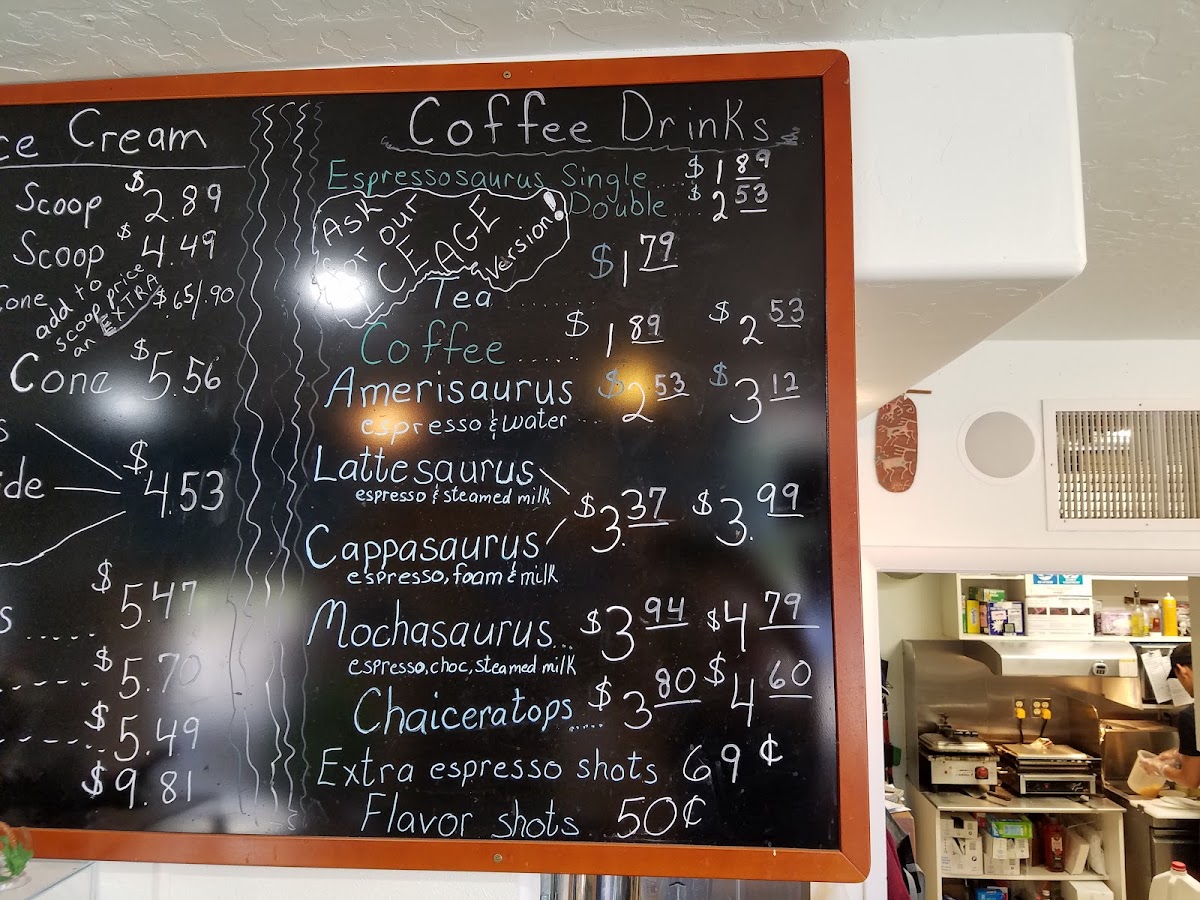 Cream
Scoop $2.89
Scoop $4.49
Cone add to scoop price an EXTRA $.65/.90
Cone $5.56
$4.53
$5.47
$5.70
$5.49
$9.81
Coffee Drinks
Espressosaurus Single.... $1 89
Double.... $2 53
Ask for our ICEAGE version!
Tea ........ $1 79
Coffee ...... $1 89 $2 53
Amerisaurus $2 53 $3 12
espresso & water
Lattesaurus
espresso & steamed milk
$3.37 $3.99
Cappasaurus
espresso, foam & milk
Mochasaurus... $3 94 $4 79
espresso, choc, steamed milk
Chaiceratops..... $3 80 $4 60
Extra espresso shots 69¢
Flavor shots 50¢